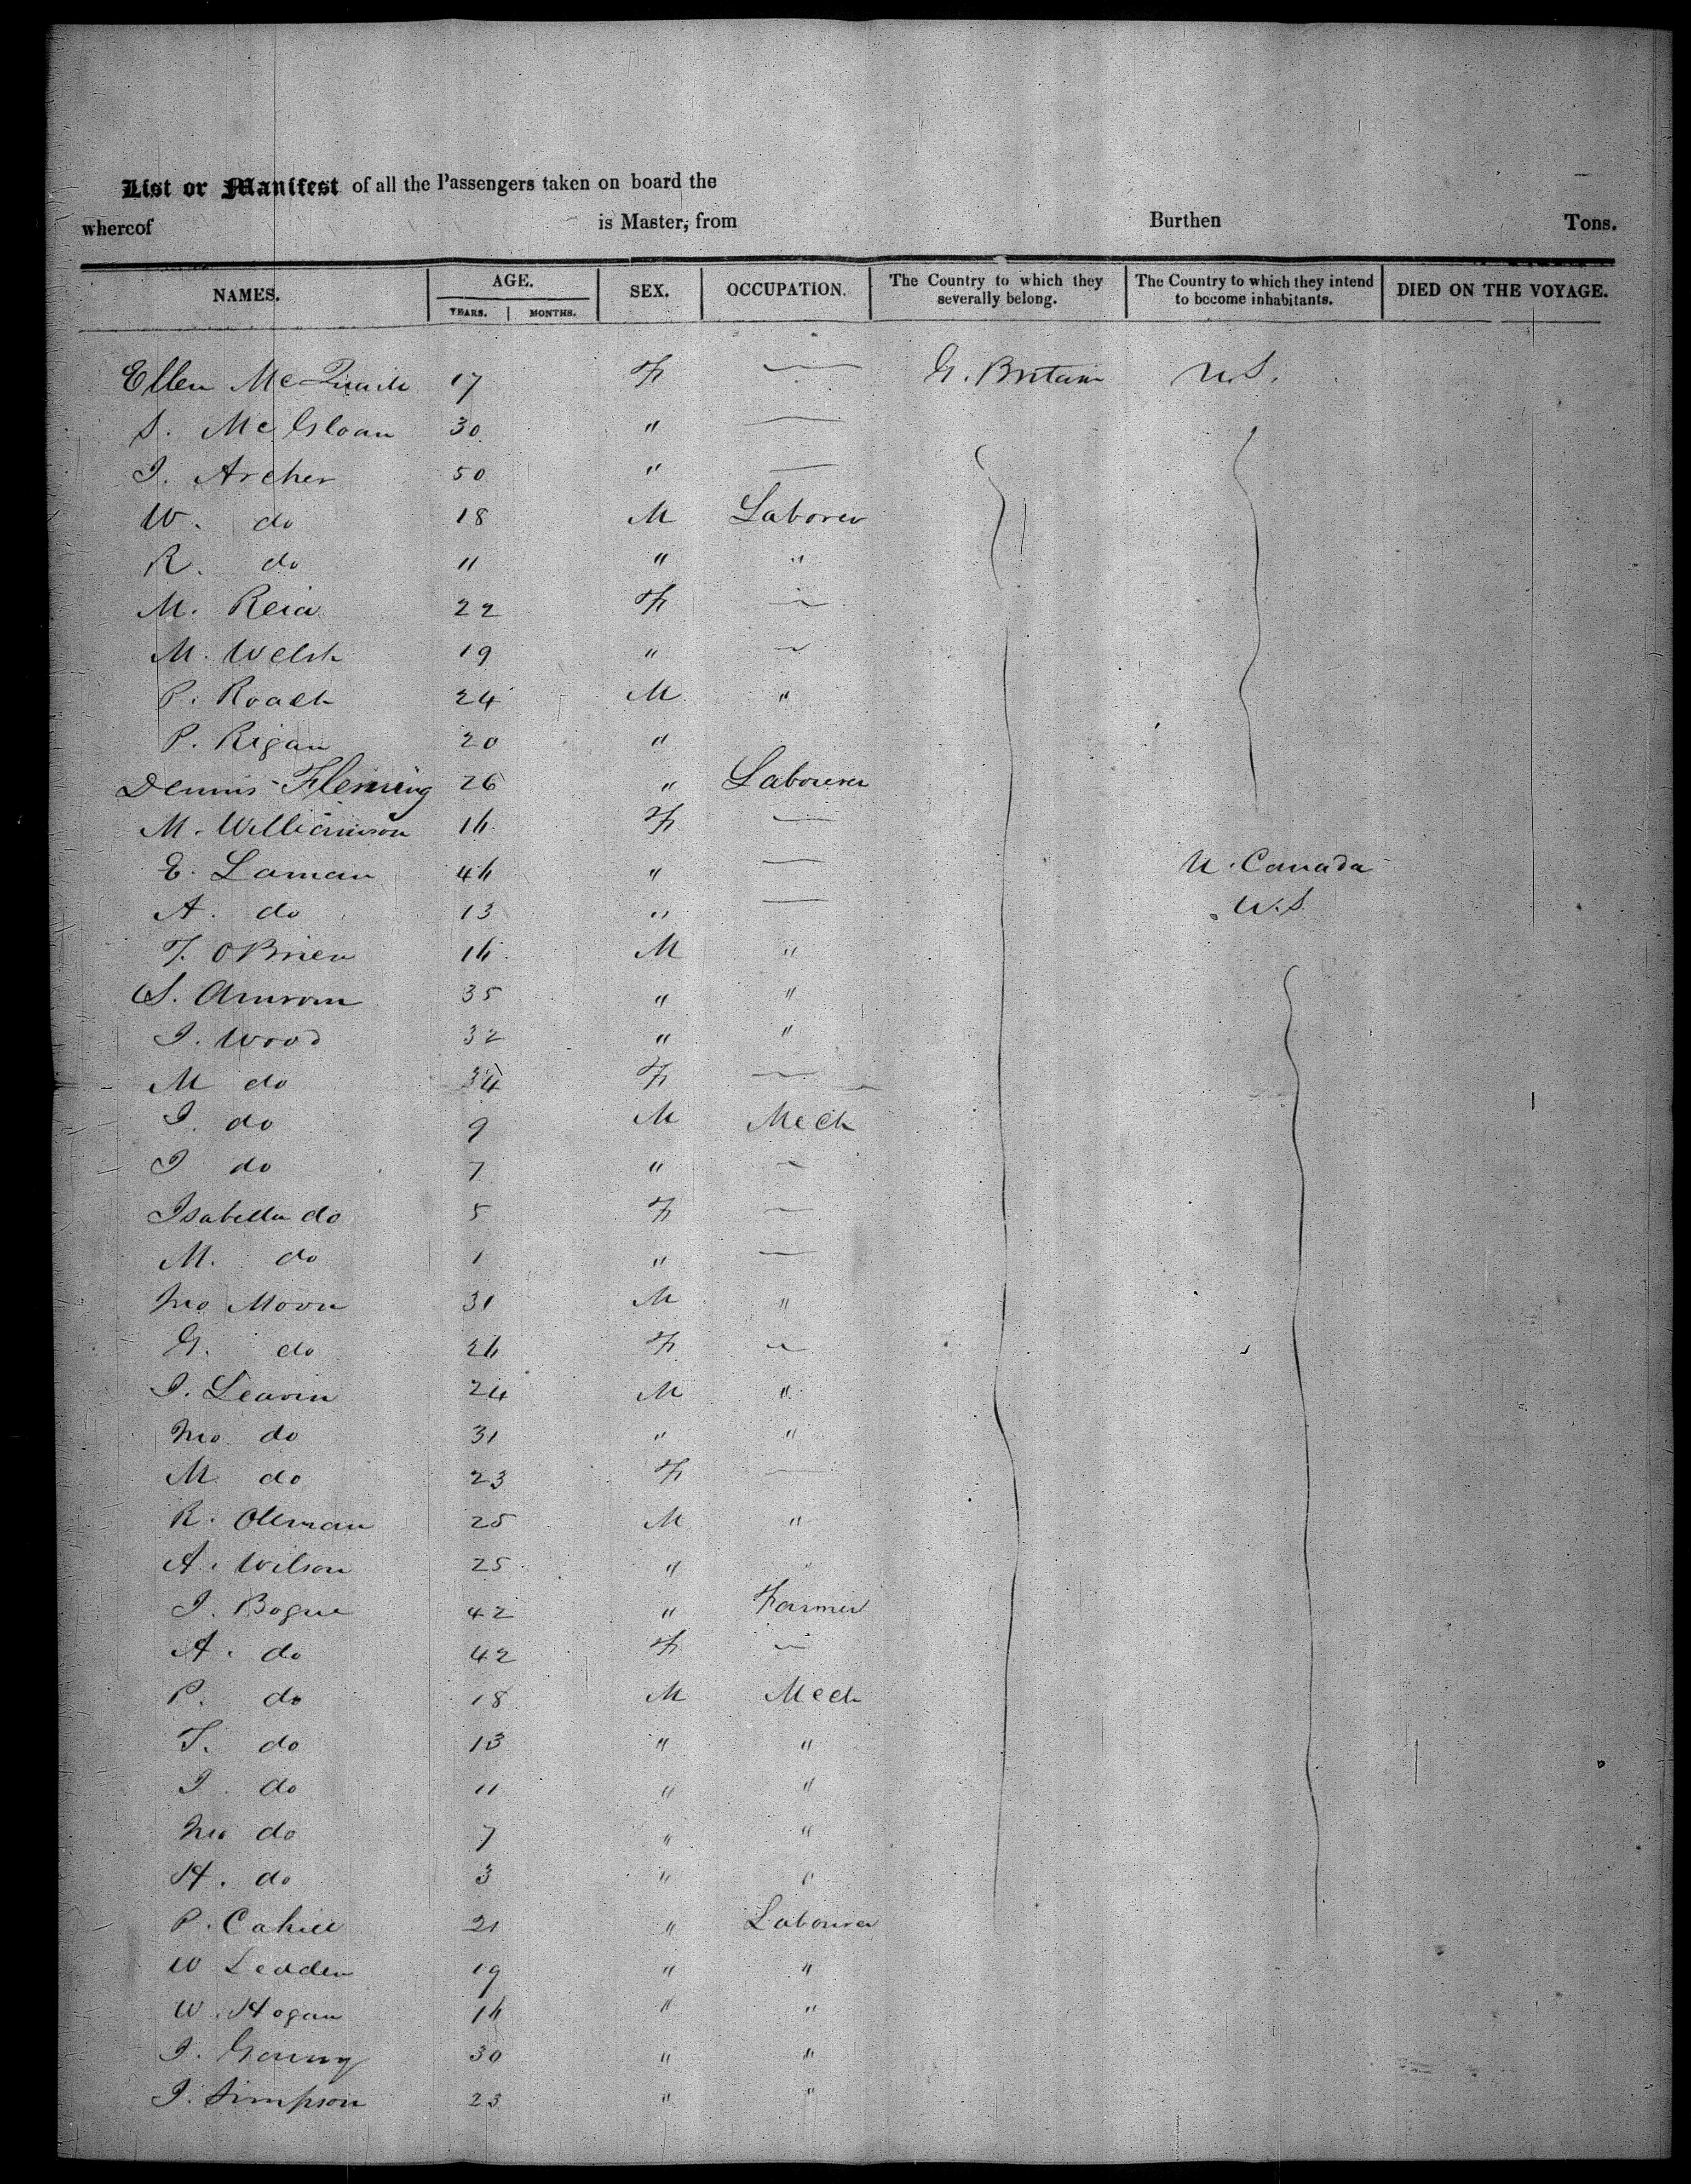 List or Manifest of all the Passengers taken on board the
whereof is Master, from Burthen Tons.
NAMES. AGE. YEARS. MONTHS. SEX. OCCUPATION. The Country to which they severally belong. The Country to which they intend to become inhabitants. DIED ON THE VOYAGE.
Ellen McQuade 17 F — G. Britain U.S.
S. McGloan 30 " —
J. Archer 50 " —
W. do 18 M Laborer
R. do 11 " "
M. Reid 22 F —
M. Welsh 19 " —
P. Roach 24 M "
P. Rigan 20 "
Dennis Fleming 26 " Labourer
M. Williamson 16 F —
E. Laman 46 " — U. Canada
A. do 13 " — U.S.
T. OBrien 16 M "
S. 35 " "
J. Wood 32 " "
M do 34 F —
J. do 9 M Mech
J do 7 " —
Isabella do 5 F —
M. do 1 " —
Jno Moon 31 M "
G. do 26 F —
J. Leavin 24 M "
Jno do 31 " "
M do 23 F —
R. Olleman 25 M "
A. Wilson 25 " "
J. Bogue 42 " Farmer
A. do 42 F —
P. do 18 M Mech
T. do 13 " "
J. do 11 " "
Jno do 7 " "
H. do 3 " "
P. Cahill 21 " Labourer
W Leaden 19 " "
W. Hogan 16 " "
J. 30 " "
J. Simpson 23 " "